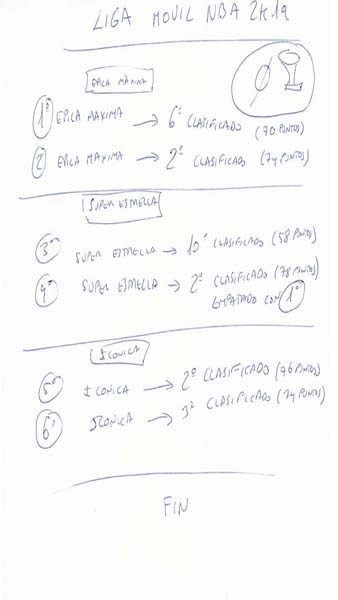 LIGA MOVIL NBA 2K19
EPICA MAXIMA
1º EPICA MAXIMA → 6º CLASIFICADO (70 PUNTOS)
2 EPICA MAXIMA → 2º CLASIFICADO (74 PUNTOS)
SUPER ESTRELLA
3º SUPER ESTRELLA → 10º CLASIFICADO (58 PUNTOS)
4º SUPER ESTRELLA → 2º CLASIFICADO (78 PUNTOS)
EMPATADO CON 1º
ICONICA
5º ICONICA → 2º CLASIFICADO (76 PUNTOS)
6º ICONICA → 3º CLASIFICADO (74 PUNTOS)
FIN